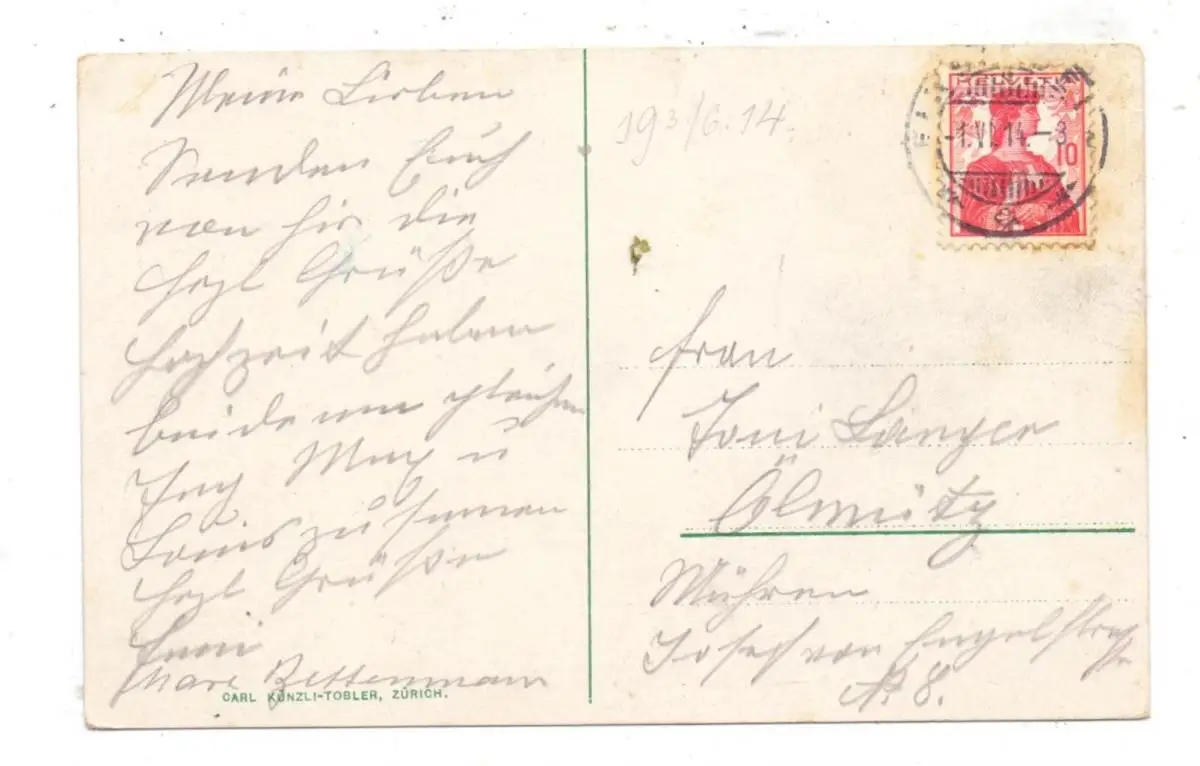 Meine Lieben
Senden Euch
von hir die
herzl Grüße
Hochzeit haben
beide am gleichen
Tag Max u
Louis zusamen
herzl Grüße
Marx Bettenmann
CARL KÜNZLI-TOBLER, ZÜRICH.
193/6.14.
HELVETIA
-1.VI.14.-8
10
Frau
Toni Langer
Ölmütz
Mähren
Josef von Engelstraße
No 8.